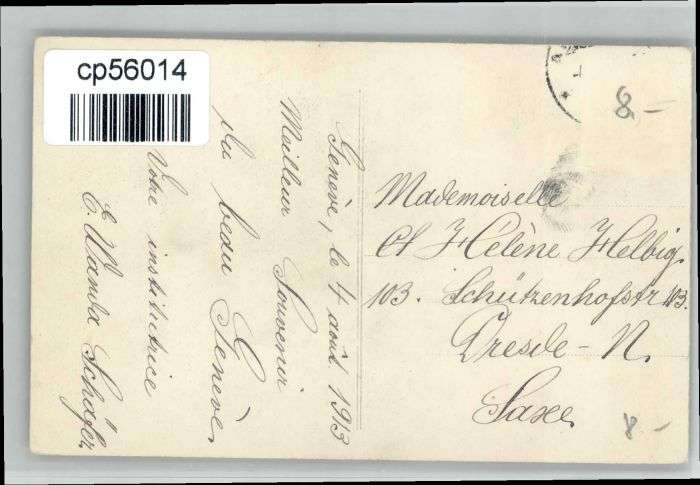 cp56014
8.-
Genève, le 4 août 1913
Meilleur Souvenir
du beau Genève.
Votre institutrice
E. Wanda Schäfer
Mademoiselle
Hélène Helbig.
103. Schützenhofstr 103.
Dresde - N.
Saxe
8.-